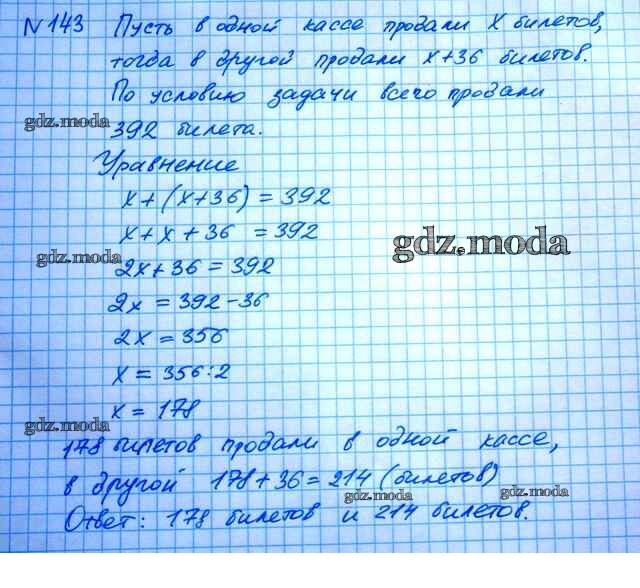 N 143 Пусть в одной кассе продали x билетов,
тогда в другой продали x+36 билетов.
По условию задачи всего продали
gdz.moda
392 билета.
Уравнение
x+(x+36)=392
x+x+36 =392
gdz.moda
gdz.moda
2x+36=392
2x =392-36
2x =356
x = 356:2
x = 178
gdz.moda
178 билетов продали в одной кассе,
в другой 178+36=214 (билетов)
gdz.moda
gdz.moda
Ответ: 178 билетов и 214 билетов.